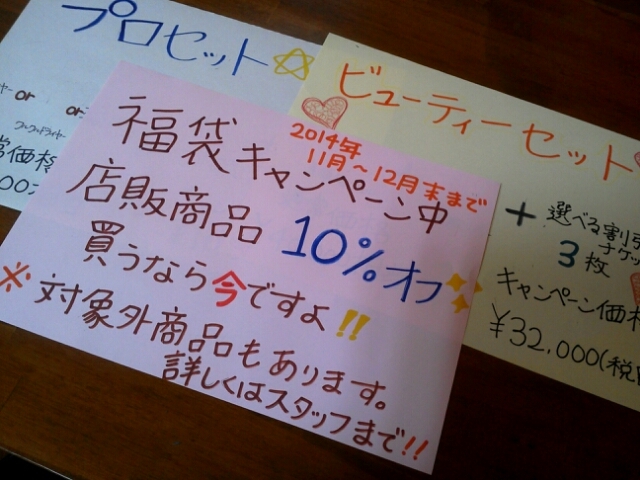 プロセット
or
or
ビューティーセット
+ 選べる割引
チケッ
3枚
キャンペーン価格
¥32,000(税
福袋キャンペーン中
2014年
11月〜12月末まで
店販商品 10%オフ
買うなら今ですよ!!
※対象外商品もあります。
詳しくはスタッフまで!!